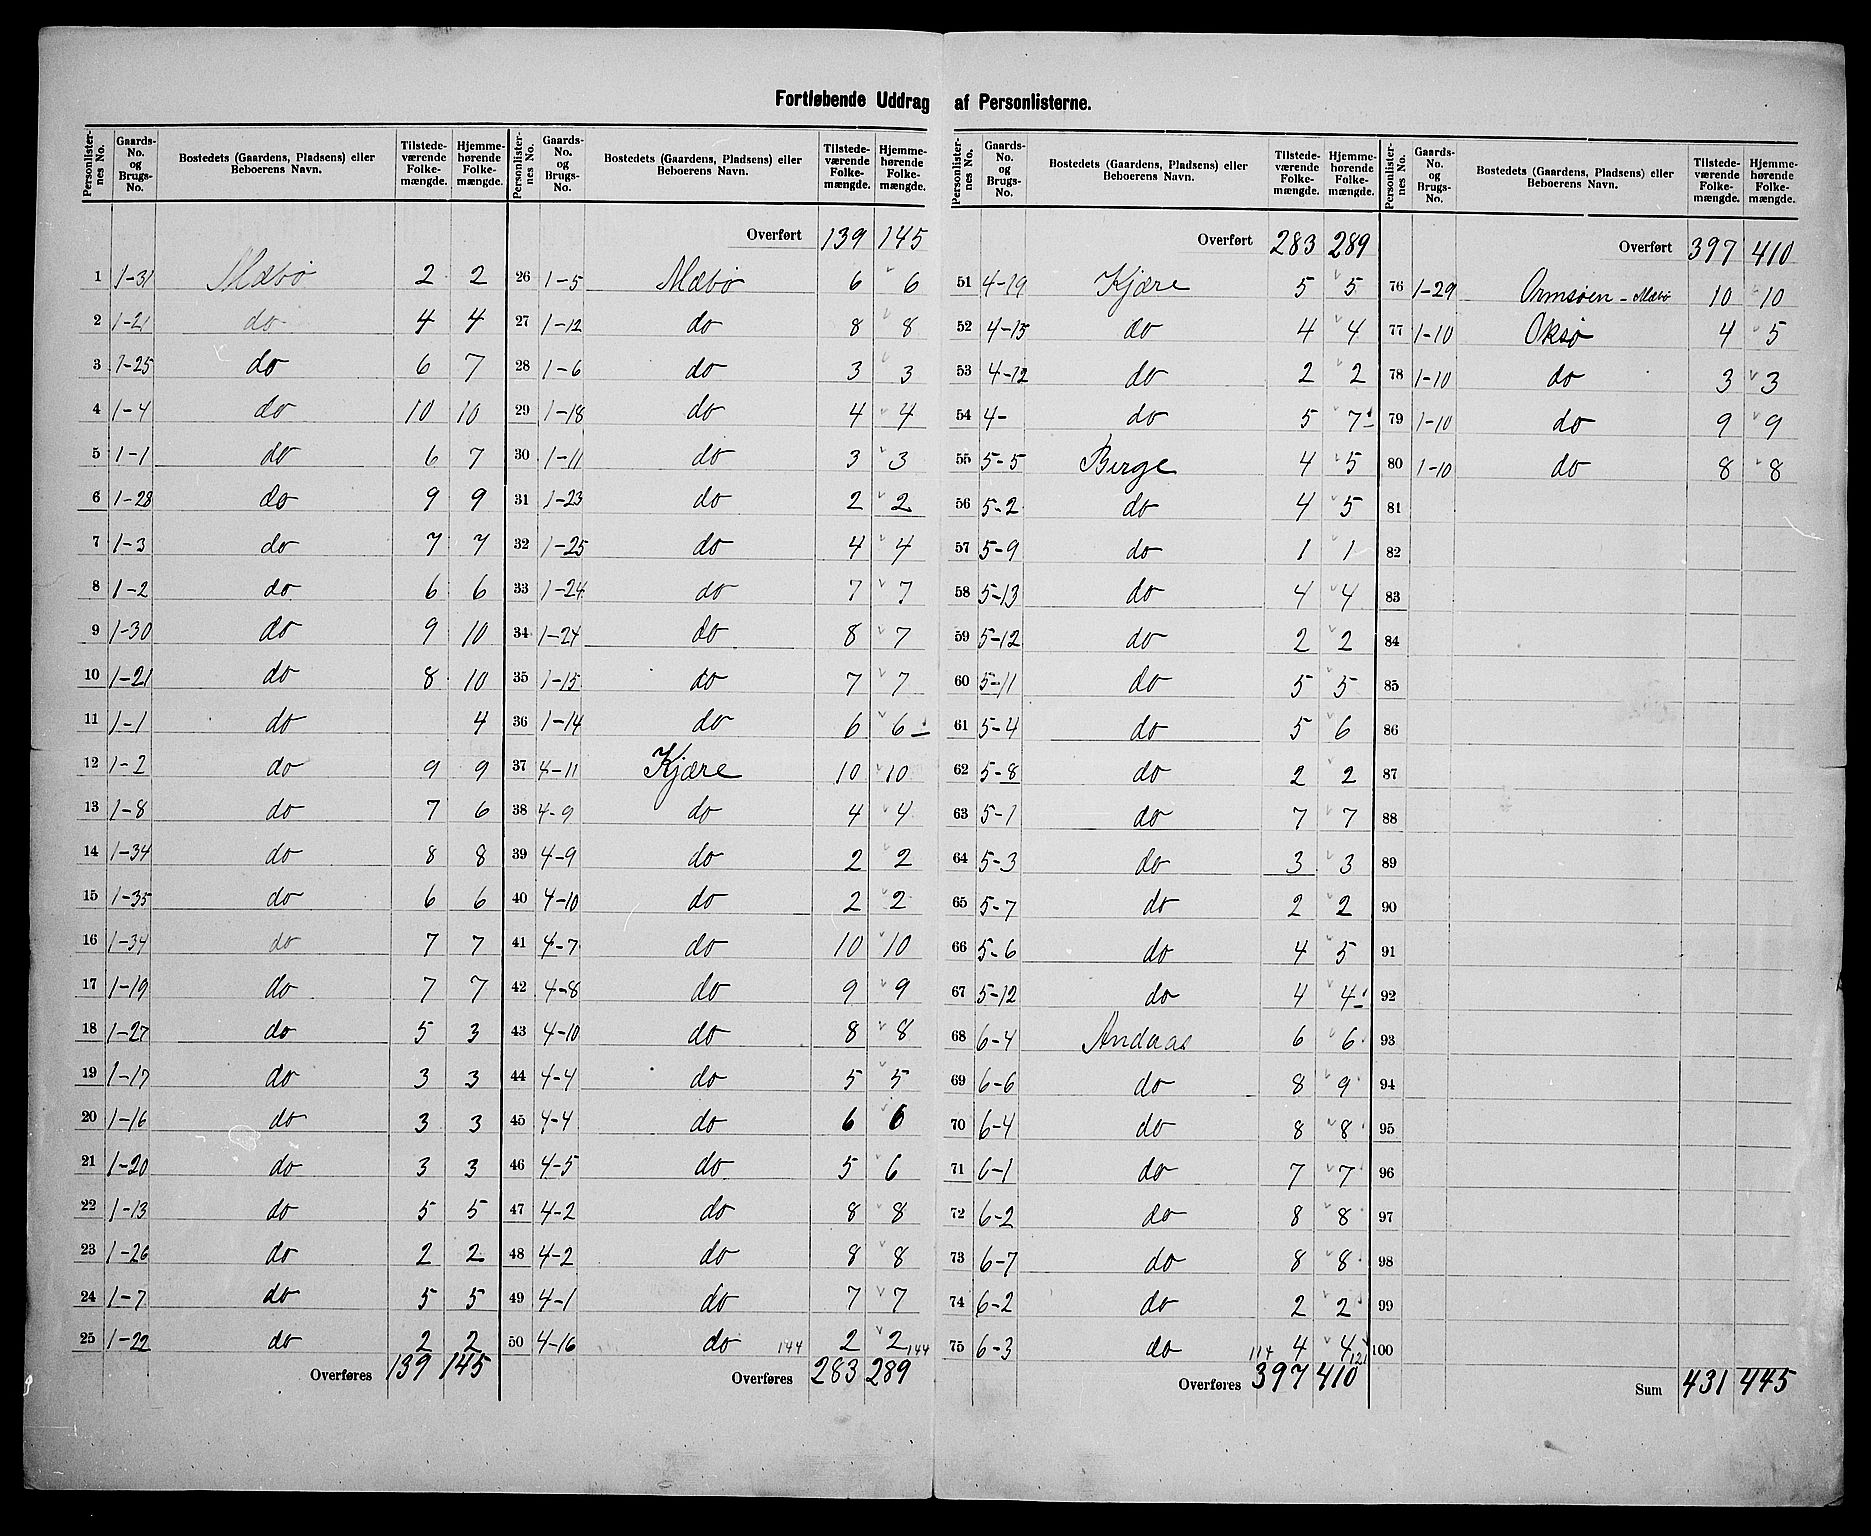 Fortløbende Uddrag af Personlisterne.
Personlister-nes No. | Gaards-No. og Brugs-No. | Bostedets (Gaardens, Pladsens) eller Beboerens Navn. | Tilstede-værende Folke-mængde. | Hjemme-hørende Folke-mængde.
1 1-31 Mæbø 2 2
2 1-21 do 4 4
3 1-25 do 6 7
4 1-4 do 10 10
5 1-1 do 6 7
6 1-28 do 9 9
7 1-3 do 7 7
8 1-2 do 6 6
9 1-30 do 9 10
10 1-21 do 8 10
11 1-1 do 4
12 1-2 do 9 9
13 1-8 do 7 6
14 1-34 do 8 8
15 1-35 do 6 6
16 1-34 do 7 7
17 1-19 do 7 7
18 1-27 do 5 3
19 1-17 do 3 3
20 1-16 do 3 3
21 1-20 do 3 3
22 1-13 do 5 5
23 1-26 do 2 2
24 1-7 do 5 5
25 1-22 do 2 2
Overføres 139 145
Personlister-nes No. | Gaards-No. og Brugs-No. | Bostedets (Gaardens, Pladsens) eller Beboerens Navn. | Tilstede-værende Folke-mængde. | Hjemme-hørende Folke-mængde.
Overført 139 145
26 1-5 Mæbø 6 6
27 1-12 do 8 8
28 1-6 do 3 3
29 1-18 do 4 4
30 1-11 do 3 3
31 1-23 do 2 2
32 1-25 do 4 4
33 1-24 do 7 7
34 1-24 do 8 7
35 1-15 do 7 7
36 1-14 do 6 6
37 4-11 Kjære 10 10
38 4-9 do 4 4
39 4-9 do 2 2
40 4-10 do 2 2
41 4-7 do 10 10
42 4-8 do 9 9
43 4-10 do 8 8
44 4-4 do 5 5
45 4-4 do 6 6
46 4-5 do 5 6
47 4-2 do 8 8
48 4-2 do 8 8
49 4-1 do 7 7
50 4-16 do 144 2 2 144
Overføres 283 289
Personlister-nes No. | Gaards-No. og Brugs-No. | Bostedets (Gaardens, Pladsens) eller Beboerens Navn. | Tilstede-værende Folke-mængde. | Hjemme-hørende Folke-mængde.
Overført 283 289
51 4-19 Kjære 5 5
52 4-15 do 4 4
53 4-12 do 2 2
54 4- do 5 7
55 5-5 Berge 4 5
56 5-2 do 4 5
57 5-9 do 1 1
58 5-13 do 4 4
59 5-12 do 2 2
60 5-11 do 5 5
61 5-4 do 5 6
62 5-8 do 2 2
63 5-1 do 7 7
64 5-3 do 3 3
65 5-7 do 2 2
66 5-6 do 4 5
67 5-12 do 4 4
68 6-4 Andaas 6 6
69 6-6 do 8 9
70 6-4 do 8 8
71 6-1 do 7 7
72 6-2 do 8 8
73 6-7 do 8 8
74 6-2 do 2 2
75 6-3 do 114 4 4 121
Overføres 397 410
Personlister-nes No. | Gaards-No. og Brugs-No. | Bostedets (Gaardens, Pladsens) eller Beboerens Navn. | Tilstede-værende Folke-mængde. | Hjemme-hørende Folke-mængde.
Overført 397 410
76 1-29 Ormsøen - Mæbø 10 10
77 1-10 Oksø 4 5
78 1-10 do 3 3
79 1-10 do 9 9
80 1-10 do 8 8
81
82
83
84
85
86
87
88
89
90
91
92
93
94
95
96
97
98
99
100
Sum 431 445